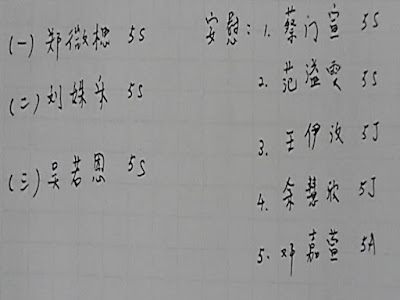 (一) 郑微楒 5S
(二) 刘姝乐 5S
(三) 吴若恩 5S
安慰: 1. 蔡门宣 5S
2. 范溢雯 5S
3. 王伊汝 5J
4. 余慧欣 5J
5. 邓嘉萱 5A